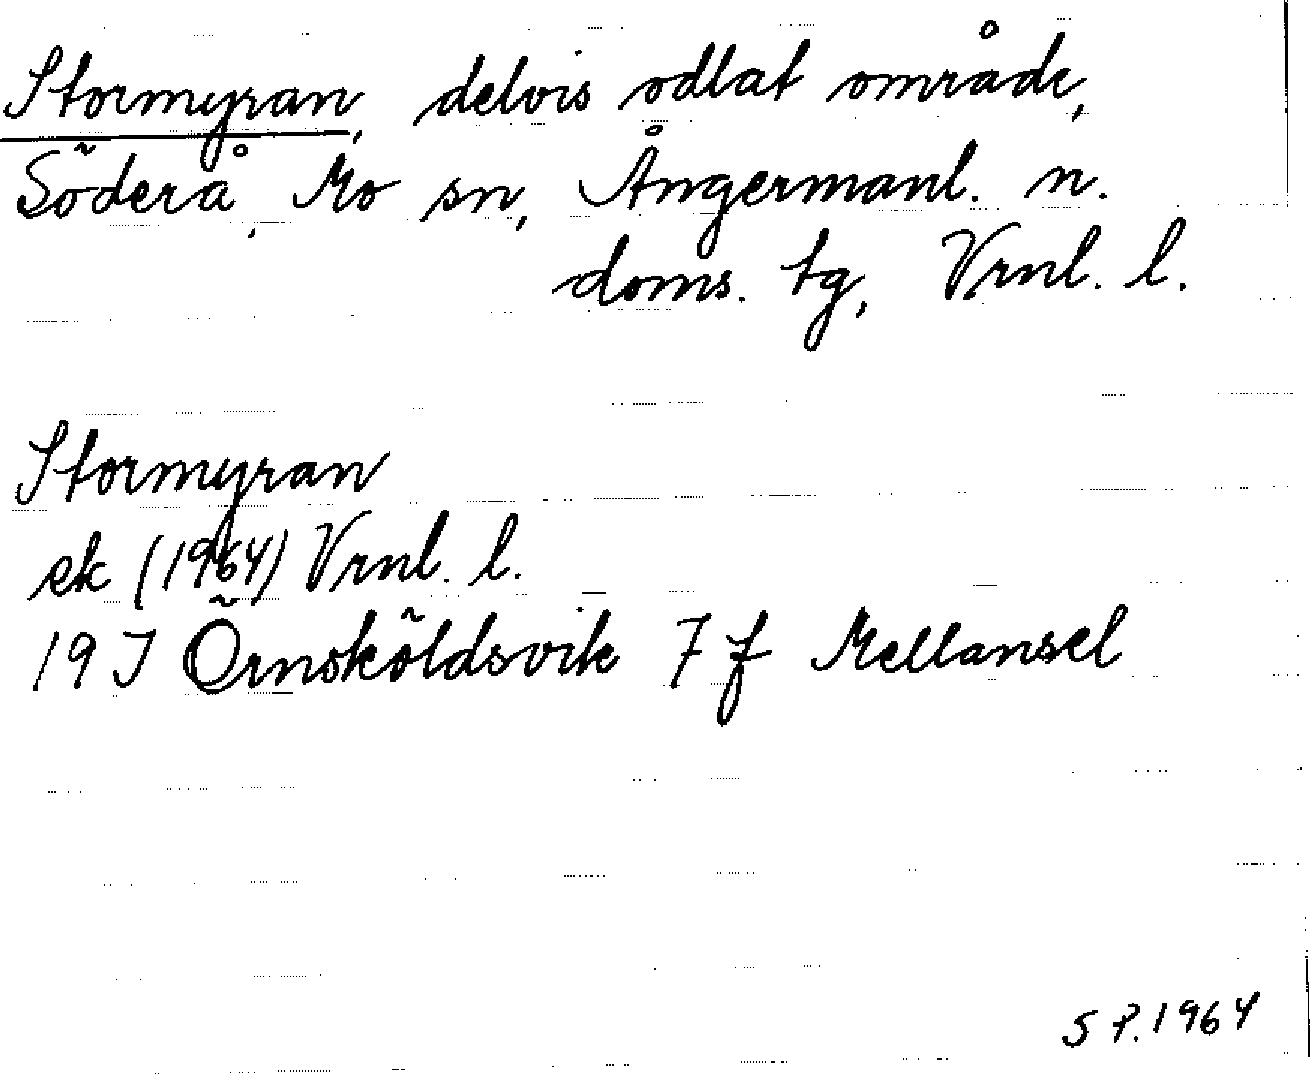 Stormyran, delvis odlat område,
Söderå, Mo sn, Ångermanl. n.
doms. tg, Vrnl. l.
Stormyran
ek (1964) Vrnl. l.
19 J Örnsköldsvik 7 f Mellansel
S P. 1964